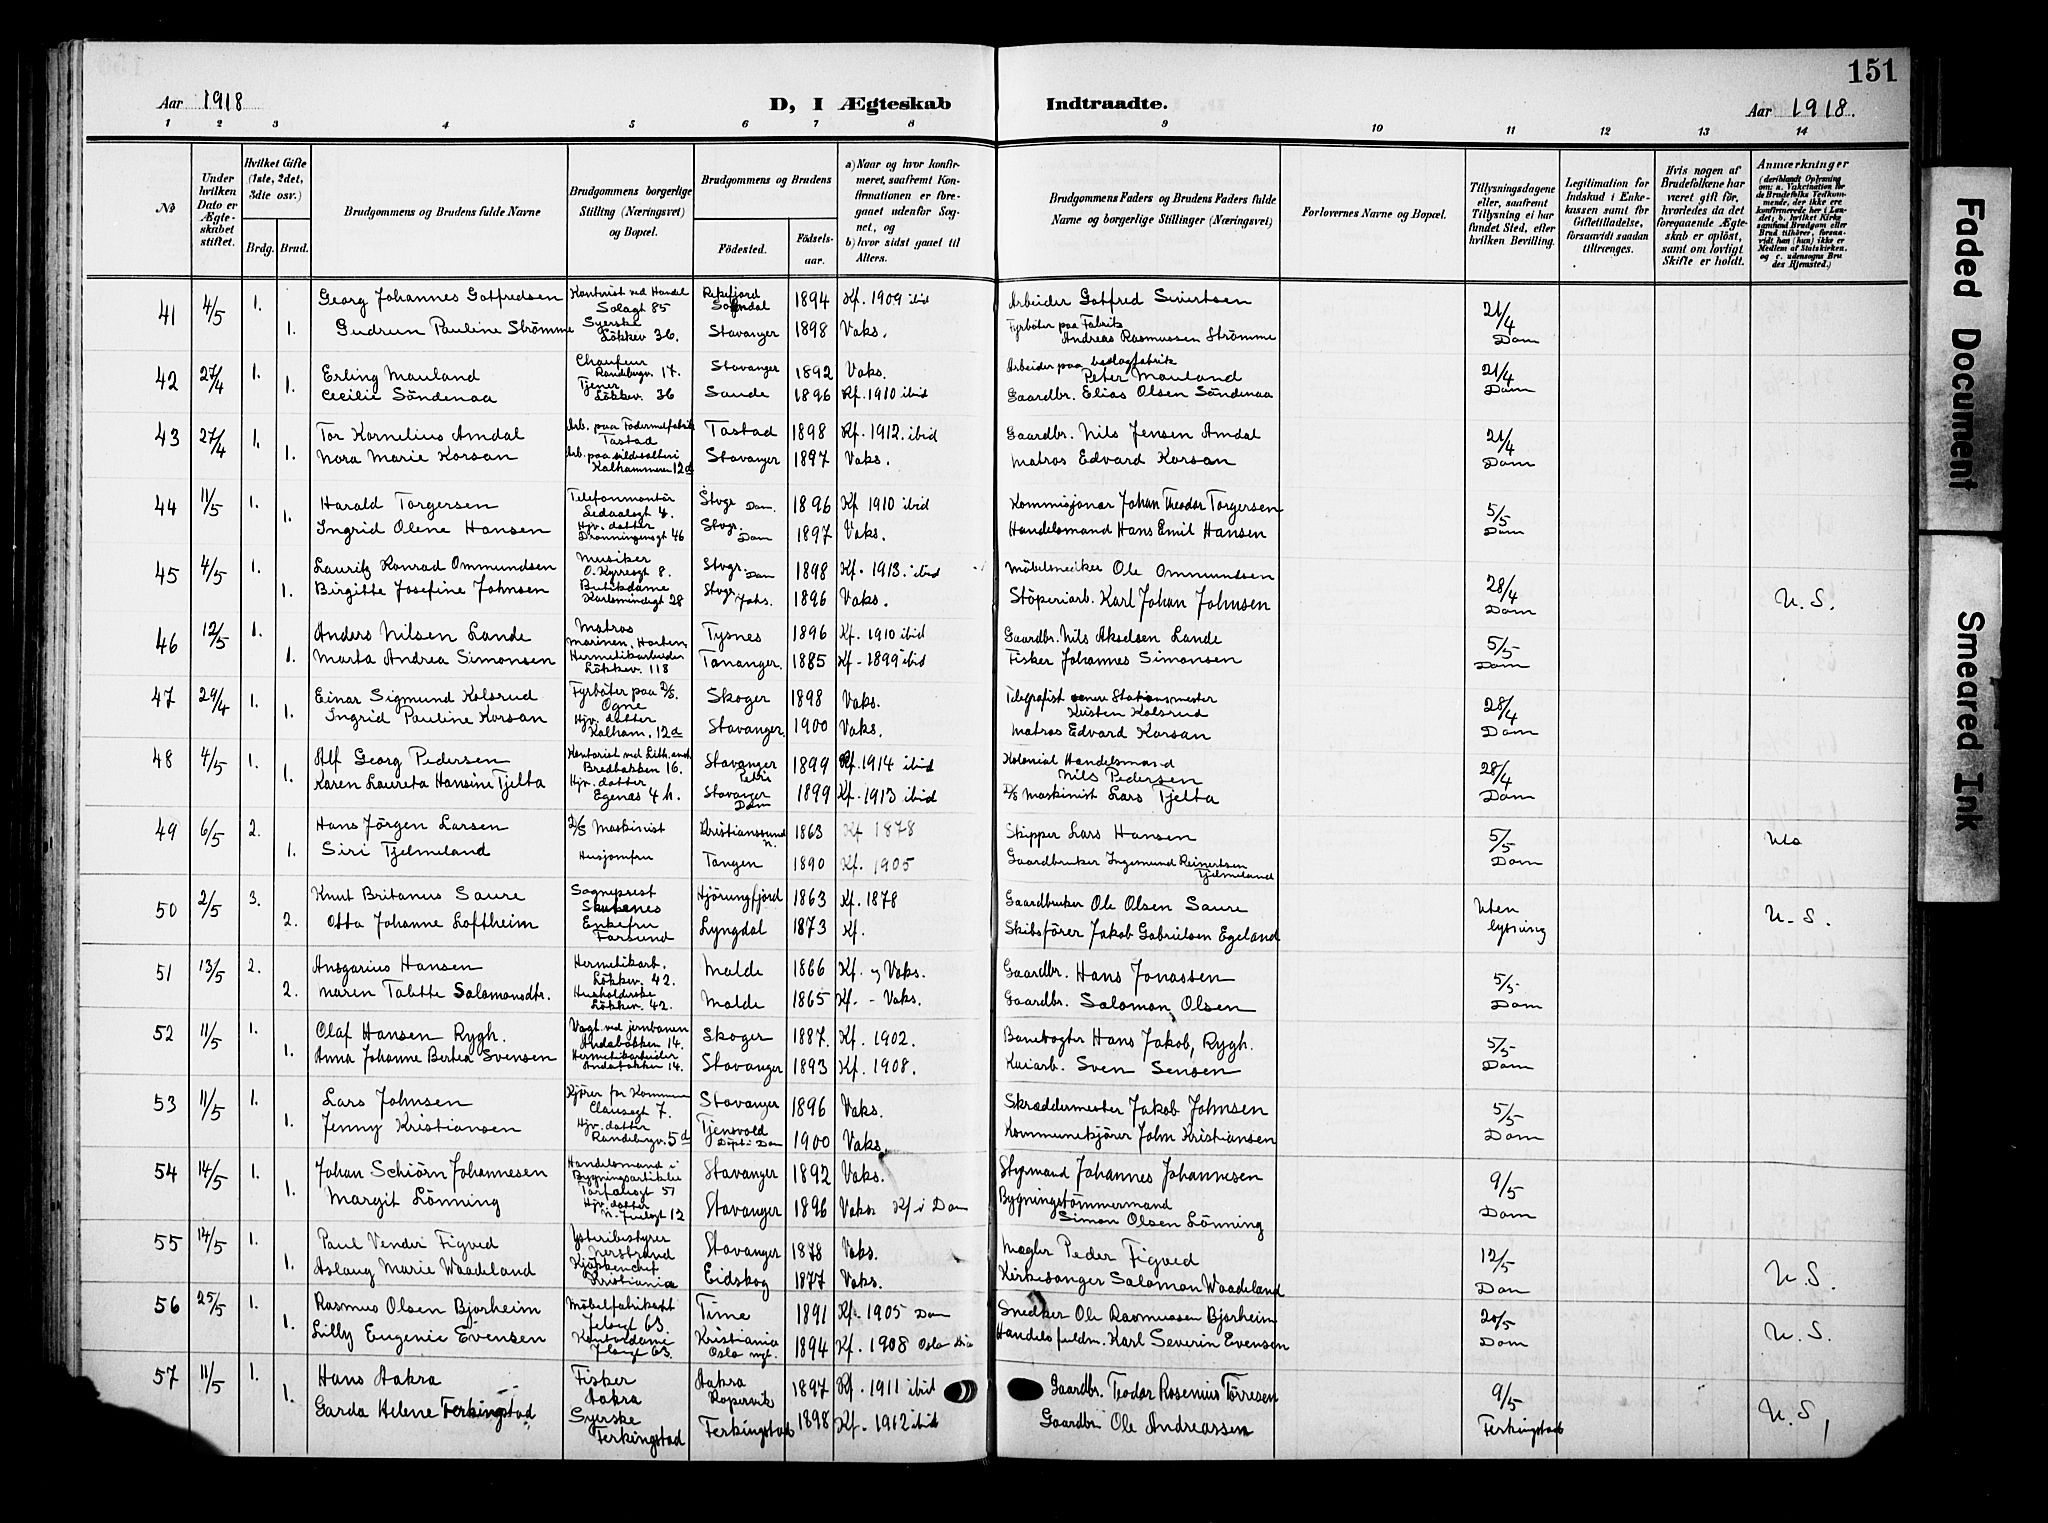 151
Aar 1918 D, I Ægteskab Indtraadte. Aar 1918.
1 2 3 4 5 6 7 8 9 10 11 12 13 14
No
Under hvilken Dato er Ægteskabet stiftet.
Hvilket Gifte (1ste, 2det, 3dte osv.)
Brdg. Brud.
Brudgommens og Brudens fulde Navne
Brudgommens borgerlige Stilling (Næringsvei) og Bopæl.
Brudgommens og Brudens
Fødested. Fødselsaar.
a) Naar og hvor konfirmeret, saafremt Konfirmationen er foregaaet udenfor Sognet, og
b) hvor sidst gaaet til Alters.
Brudgommens Faders og Brudens Faders fulde Navne og borgerlige Stillinger (Næringsvei)
Forlovernes Navne og Bopæl.
Tillysningsdagene eller, saafremt Tillysning ei har fundet Sted, efter hvilken Bevilling.
Legitimation for Indskud i Enkekassen samt for Giftetilladelse, forsaavidt saadan tiltrænges.
Hvis nogen af Brudefolkene har været gift før, hvorledes da det foregaaende Ægteskab er opløst, samt om lovligt Skifte er holdt.
Anmærkninger (deriblandt Oplysning om: a. Vakcination for de Brudefolks Vedkommende, der ikke ere konfirmerede her i Landet; b. hvilket Kirkesamfund Brudgom eller Brud tilhører, forsaavidt han (hun) ikke er Medlem af Statskirken, og c. udensogns Brudes Hjemsted.)
41 4/5 1. Georg Johannes Gotfredsen Kontorist ved Handel Solagt 85 Rekefjord Sogndal 1894 Kf. 1909 ibid Arbeider Gotfred Sivertsen 21/4 Dom
1. Gudrun Pauline Strömme Syerske Lökkev 36. Stavanger 1898 Vaks. Fyrböter paa Fabrik Andreas Rasmussen Strömme
42 27/4 1. Erling Mauland Chaufeur Randebergv. 17. Stavanger 1892 Vaks. Arbeider paa beslagfabrik Peter Mauland 21/4 Dom
1. Cecilie Söndenaa Tjener Lökkev. 36 Sande 1896 Kf. 1910 ibid Gaardbr. Elias Olsen Söndenaa
43 27/4 1. Tor Kornelius Amdal Arb. paa Fodermelfabrik Tastad Tastad 1898 Kf. 1912. ibid Gaardbr. Nils Jensen Amdal 21/4 Dom
1. Nora Marie Korsan Arb. paa sildsalteri Kalhammeren 12a Stavanger 1897 Vaks. Matros Edvard Korsan
44 11/5 1. Harald Torgersen Telefonmontör Ledaalsgt 4. Stvgr Dom. 1896 Kf 1910 ibid Kommisjonær Johan Theodor Torgersen 5/5 Dom
1. Ingrid Olene Hansen Hjv. datter Dronningensgt 46 Stvgr. Dom 1897 Vaks. Handelsmand Hans Emil Hansen
45 4/5 1. Lauritz Konrad Ommundsen Musiker O. Kyrresgt 8. Stvgr. Dom 1898 Kf. 1913. ibid Möbelsnedker Ole Ommundsen 28/4 Dom
1. Birgitte Josefine Johnsen Butikdame Karlsmindegt 28 Stvgr Johs. 1896 Vaks. Stöperiarb. Karl Johan Johnsen U. S.
46 12/5 1. Anders Nilsen Lande Matros Marinen, Horten Tysnes 1896 Kf. 1910 ibid Gaardbr. Nils Akselsen Lande 5/5 Dom
1. Marta Andrea Simonsen Hermetikarbeider Lökkev. 118 Tananger. 1885 Kf - 1899 ibid Fisker Johannes Simonsen
47 29/4 1. Einar Sigmund Kolsrud Fyrböter paa D/S. Ogne Skoger 1898 Vaks. Telegrafist senere Stationsmester Kristen Kolsrud 28/4 Dom
1. Ingrid Pauline Korsan Hjv. datter Kalham. 12a Stavanger. 1900 Vaks. Matros Edvard Korsan
48 4/5 1. Alf Georg Pedersen Kontorist ved Lith.anst. Bredbakken 16. Stavanger Petri 1899 Kf. 1914 ibid Kolonial Handelsmand Nils Pedersen 28/4 Dom
1. Karen Laureta Hansine Tjelta Hjv. datter Egenæs 4 h. Stavanger Dom 1899 Kf. 1913 ibid D/S Maskinist Lars Tjelta
49 6/5 2. Hans Jörgen Larsen D/S Maskinist Kristianssund n. 1863 Kf 1878 Skipper Lars Hansen 5/5 Dom Us
1. Siri Tjelmeland Husjomfru Tangen 1890 Kf. 1905 Gaardbruker Ingemund Reinertsen Tjelmeland
50 2/5 3. Knut Britanus Saure Sogneprest Skudenes Hjörungfjord 1863 Kf. 1878 Gaardbruker Ole Olsen Saure Uten lysning U. S.
2. Otta Johanne Loftheim Enkefru Farsund Lyngdal 1873 Kf. Skibsförer Jakob Gabrielsen Egeland
51 13/5 2. Ansgarius Hansen Hermetikarb. Lökkev. 42. Molde 1866 Kf. og Vaks. Gaardbr. Hans Jonassen 5/5 Dom
2. Maren Tolette Salomonsdtr. Husholderske Lökkev. 42. Molde 1865 Kf. - Vaks. Gaardbr. Salomon Olsen
52 11/5 1. Olaf Hansen Rygh. Vagt ved jernbanen Andabakken 14. Skoger 1887. Kf. 1902. Banevogter Hans Jakob Rygh. 5/5 Dom
1. Anna Johanne Bertea Svensen Hermetikarbeider Andabakken 14. Stavanger 1893 Kf. 1908. Kaiarb. Sven Sensen
53 11/5 1. Lars Johnsen Kjörer for Kommunen Clausegt 7. Stavanger 1896 Vaks. Skræddermester Jakob Johnsen 5/5 Dom
1. Jenny Kristiansen Hjv. datter Randebergv. 5d Tjensvold Döpt i Dom 1900 Vaks. Kommunekjörer John Kristiansen
54 14/5 1. Johan Schiörn Johannesen Handelsmand i Bygningsartikler Torfæusgt 51 Stavanger 1892 Vaks. Styrmand Johannes Johannesen 9/5 Dom
1. Margit Lönning Hjv. datter 12 Stavanger 1896 Vaks. Kf i Dom Bygningstömmermand Simon Olsen Lönning
55 14/5 1. Paul Vender Figved Ysteribestyrer Nerstrand Stavanger 1878 Vaks. Mægler Peder Figved 12/5 Dom
1. Aslaug Marie Waadeland Kjökkenchef Kristiania Eidskog 1877 Vaks. Kirkesanger Salomon Waadeland U. S.
56 25/5 1. Rasmus Olsen Bjorheim Möbelfabrikant 63 Time 1891 Kf. 1905 Dom Snedker Ole Rasmussen Bjorheim 20/5 Dom
1. Lilly Eugenie Evensen Kontordame 63. Kristiania Oslo mgt. 1894 Kf. 1908 Oslo Handelsfuldm. Karl Severin Evensen U. S.
57 11/5 1. Hans Aakra Fisker Aakra Aakra Kopervik 1897 Kf. 1911 ibid Gaardbr. Teodor Rosenius Törresen 9/5 Ferkingstad
1. Garda Helene Ferkingstad Syerske Ferkingstad Ferkingstad 1898 Kf. 1912 ibid Gaardbr. Ole Andreassen U. S.
Faded Document
Smeared Ink